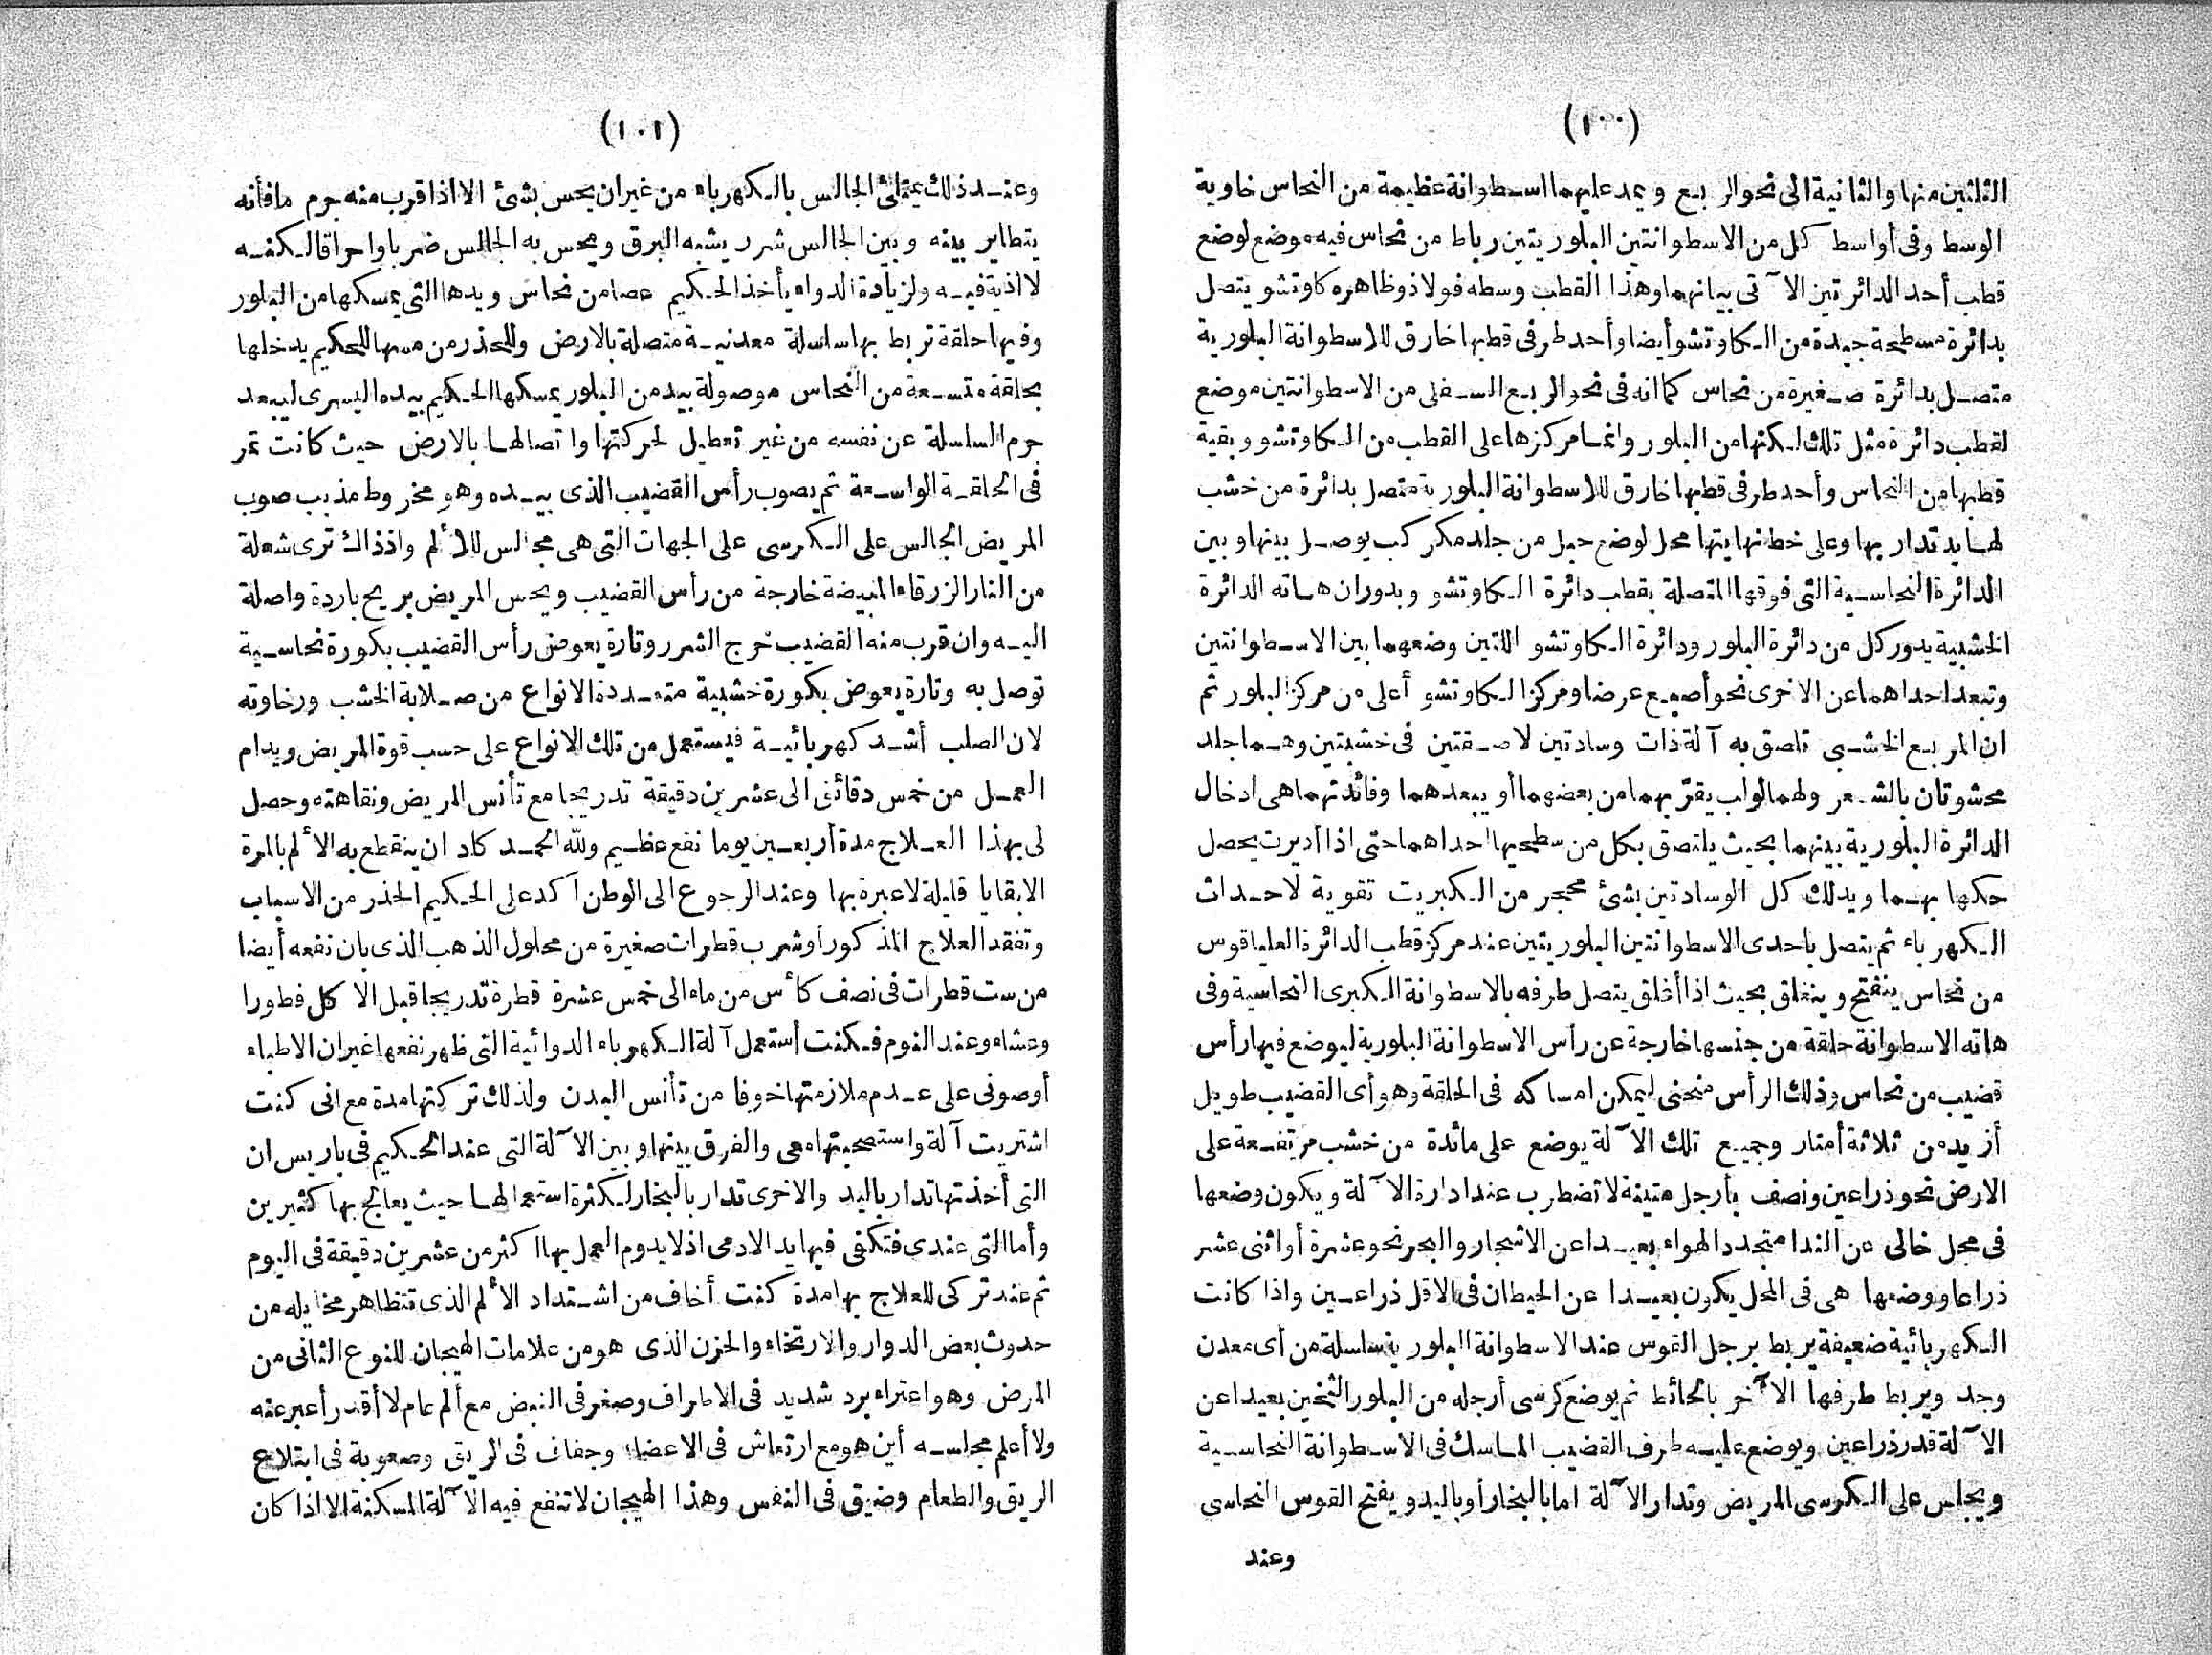 (١٠٠)
الثلثين منها والثانية الى نحو الربع ويمد عليهما اسطوانة عظيمة من النحاس خاوية
الوسط وفى أواسط كل من الاسطوانتين البلوريتين رباط من نحاس فيه موضع لوضع
قطب أحد الدائرتين الآتى بيانهما وهذا القطب وسطه فولاذ وظاهره كاوتشو يتصل
بدائرة مسطحة جيدة من الكاوتشو أيضا وأحد طرفى قطبها خارق للاسطوانة البلورية
متصل بدائرة صغيرة من نحاس كما انه فى نحو الربع السفلى من الاسطوانتين موضع
لقطب دائرة مثل تلك لكنها من البلور وانما مركزها على القطب من الكاوتشو وبقية
قطبها من النحاس وأحد طرفى قطبها خارق للاسطوانة البلورية متصل بدائرة من خشب
لها يد تدار بها وعلى خط نهايتها محل لوضع حبل من جلد مكركب يوصل بينها وبين
الدائرة النحاسية التى فوقها المتصلة بقطب دائرة الكاوتشو وبدوران هاته الدائرة
الخشبية يدور كل من دائرة البلور ودائرة الكاوتشو اللتين وضعهما بين الاسطوانتين
وتبعد احداهما عن الاخرى نحو أصبع عرضا ومركز الكاوتشو أعلى من مركز البلور ثم
ان المربع الخشبى تلصق به آلة ذات وسادتين لاصقتين فى خشبتين وهما جلد
محشوتان بالشعر ولهما لوالب يقرّ بهما من بعضهما أو يبعدهما وفائدتهما هى ادخال
الدائرة البلورية بينهما بحيث يلتصق بكل من سطحيها احداهما حتى اذا أديرت يحصل
حكها بهما ويدلك كل الوسادتين بشئ محجر من الكبريت تقوية لاحداث
الكهرباء ثم يتصل باحدى الاسطوانتين البلوريتين عند مركز قطب الدائرة العليا قوس
من نحاس ينفتح وينغلق بحيث اذا أغلق يتصل طرفه بالاسطوانة الكبرى النحاسية وفى
هاته الاسطوانة حلقة من جنسها خارجة عن رأس الاسطوانة البلورية ليوضع فيها رأس
قضيب من نحاس وذلك الرأس منحنى ليمكن امساكه فى الحلقة وهو أى القضيب طويل
أزيد من ثلاثة أمتار وجميع تلك الآلة يوضع على مائدة من خشب مرتفعة على
الارض نحو ذراعين ونصف بأرجل متينة لا تضطرب عند ادارة الآلة ويكون وضعها
فى محل خالى عن الندا متجدد الهواء بعيدا عن الاشجار والبحر نحو عشرة أو اثنى عشر
ذراعا ووضعها هى فى المحل يكون بعيدا عن الحيطان فى الاقل ذراعين واذا كانت
الكهربائية ضعيفة يربط برجل القوس عند الاسطوانة البلورية سلسلة من أى معدن
وجد ويربط طرفها الآخر بالحائط ثم يوضع كرسى أرجله من البلور الثخين بعيدا عن
الآلة قدر ذراعين ويوضع عليه طرف القضيب الماسك فى الاسطوانة النحاسية
ويجلس على الكرسى المريض وتدار الآلة اما بالبخار أو باليد ويفتح القوس النحاسى
وعند
(١٠١)
وعند ذلك يمتلئ الجالس بالكهرباء من غير ان يحس بشئ الا اذا قرب منه جرم ما فأنه
يتطاير بينه وبين الجالس شرر يشبه البرق ويحس به الجالس ضربا واحراقا لكنه
لا اذية فيه ولزيادة الدواء يأخذ الحكيم عصا من نحاس ويدها التى يمسكها من البلور
وفيها حلقة تربط بها سلسلة معدنية متصلة بالارض وللحذر من مسها للحكيم يدخلها
بحلقة متسعة من النحاس موصولة بيد من البلور يمسكها الحكيم بيده اليسرى ليبعد
جرم السلسلة عن نفسه من غير تعطيل لحركتها واتصالها بالارض حيث كانت تمر
فى الحلقة الواسعة ثم يصوب رأس القضيب الذى بيده وهو مخروط مذبب صوب
المريض الجالس على الكرسى على الجهات التى هى مجالس للألم واذ ذاك ترى شعلة
من النار الزرقاء المبيضة خارجة من رأس القضيب ويحس المريض بريح باردة واصلة
اليه وان قرب منه القضيب خرج الشرر وتارة يعوض رأس القضيب بكورة نحاسية
توصل به وتارة يعوض بكورة خشبية متعددة الانواع من صلابة الخشب ورخاوته
لان الصلب أشد كهربائية فيستعمل من تلك الانواع على حسب قوة المريض ويدام
العمل من خمس دقائق الى عشرين دقيقة تدريجا مع تأنس المريض ونقاهته وحصل
لى بهذا العلاج مدة أربعين يوما نفع عظيم ولله الحمد كاد ان ينقطع به الألم بالمرة
الا بقايا قليلة لا عبرة بها وعند الرجوع الى الوطن آكد على الحكيم الحذر من الاسباب
وتفقد العلاج المذكور أو شرب قطرات صغيرة من محلول الذهب الذى بان نفعه أيضا
من ست قطرات فى نصف كأس من ماء الى خمس عشرة قطرة تدريجا قبل الاكل فطورا
وعشاء وعند النوم فكنت أستعمل آلة الكهرباء الدوائية التى ظهر نفعها غير ان الاطباء
أوصونى على عدم ملازمتها خوفا من تأنس البدن ولذلك تركتها مدة مع انى كنت
اشتريت آلة واستصحبتها معى والفرق بينها وبين الآلة التى عند الحكيم فى باريس ان
التى أخذتها تدار باليد والاخرى تدار بالبخار لكثرة استعمالها حيث يعالج بها كثيرين
وأما التى عندى فتكفى فيها يد الادمى اذ لا يدوم العمل بها اكثر من عشرين دقيقة فى اليوم
ثم عند تركى للعلاج بها مدة كنت أخاف من اشتداد الألم الذى تتظاهر مخايله من
حدوث بعض الدوار والارتخاء والحزن الذى هو من علامات الهيجان للنوع الثانى من
المرض وهو اعتراء برد شديد فى الاطراف وصغر فى النبض مع ألم عام لا أقدر أعبر عنه
ولا أعلم مجلسه أين هو مع ارتعاش فى الاعضاء وجفاف فى الريق وصعوبة فى ابتلاع
الريق والطعام وضيق فى النفس وهذا الهيجان لا تنفع فيه الآلة المسكنة الا اذا كان